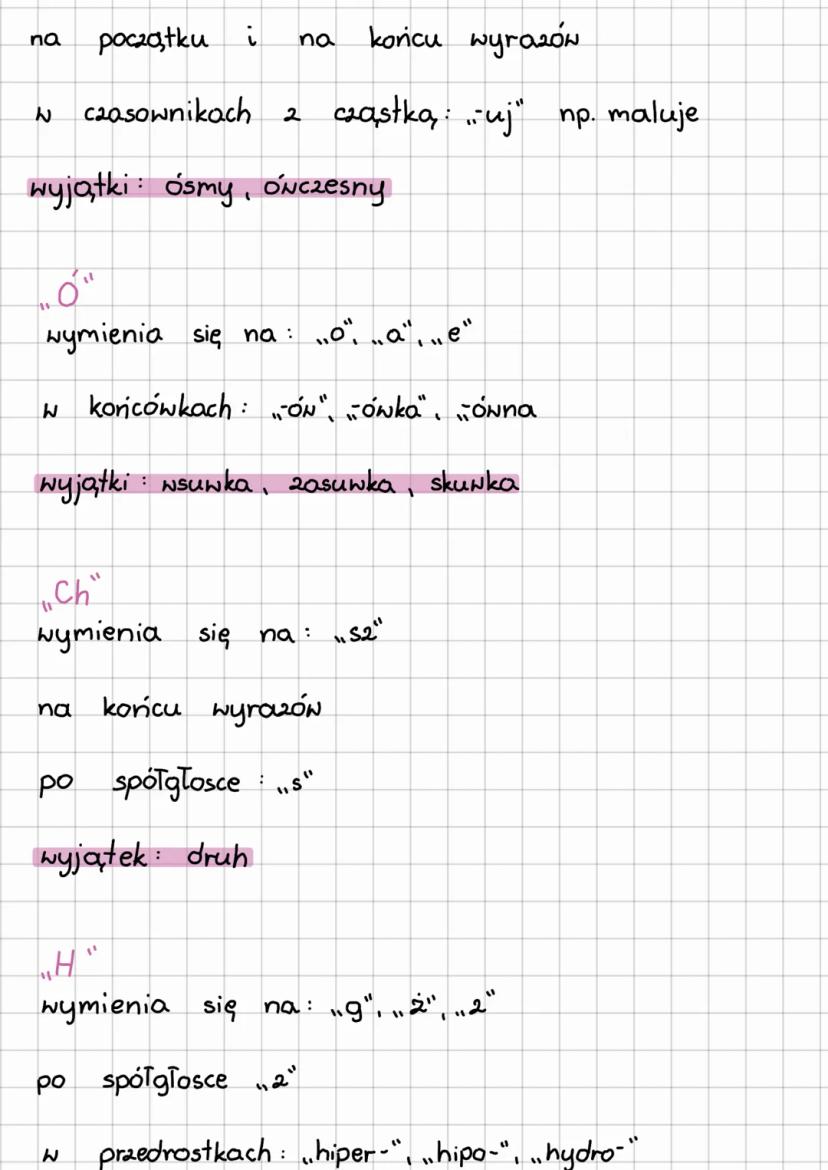 na początku i na końcu wyrazów
w czasownikach z cząstką: „-uj” np. maluje
wyjątki: ósmy, ówczesny
„Ó”
wymienia się na: „o”, „a”, „e”
w końcówkach: „-ów”, „-ówka”, „-ówna
wyjątki: wsuwka, zasuwka, skuwka
„Ch”
wymienia się na: „sz”
na końcu wyrazów
po spółgłosce: „s”
wyjątek: druh
„H”
wymienia się na: „g”, „ż”, „z”
po spółgłosce „z”
w przedrostkach: „hiper-”, „hipo-”, „hydro-”